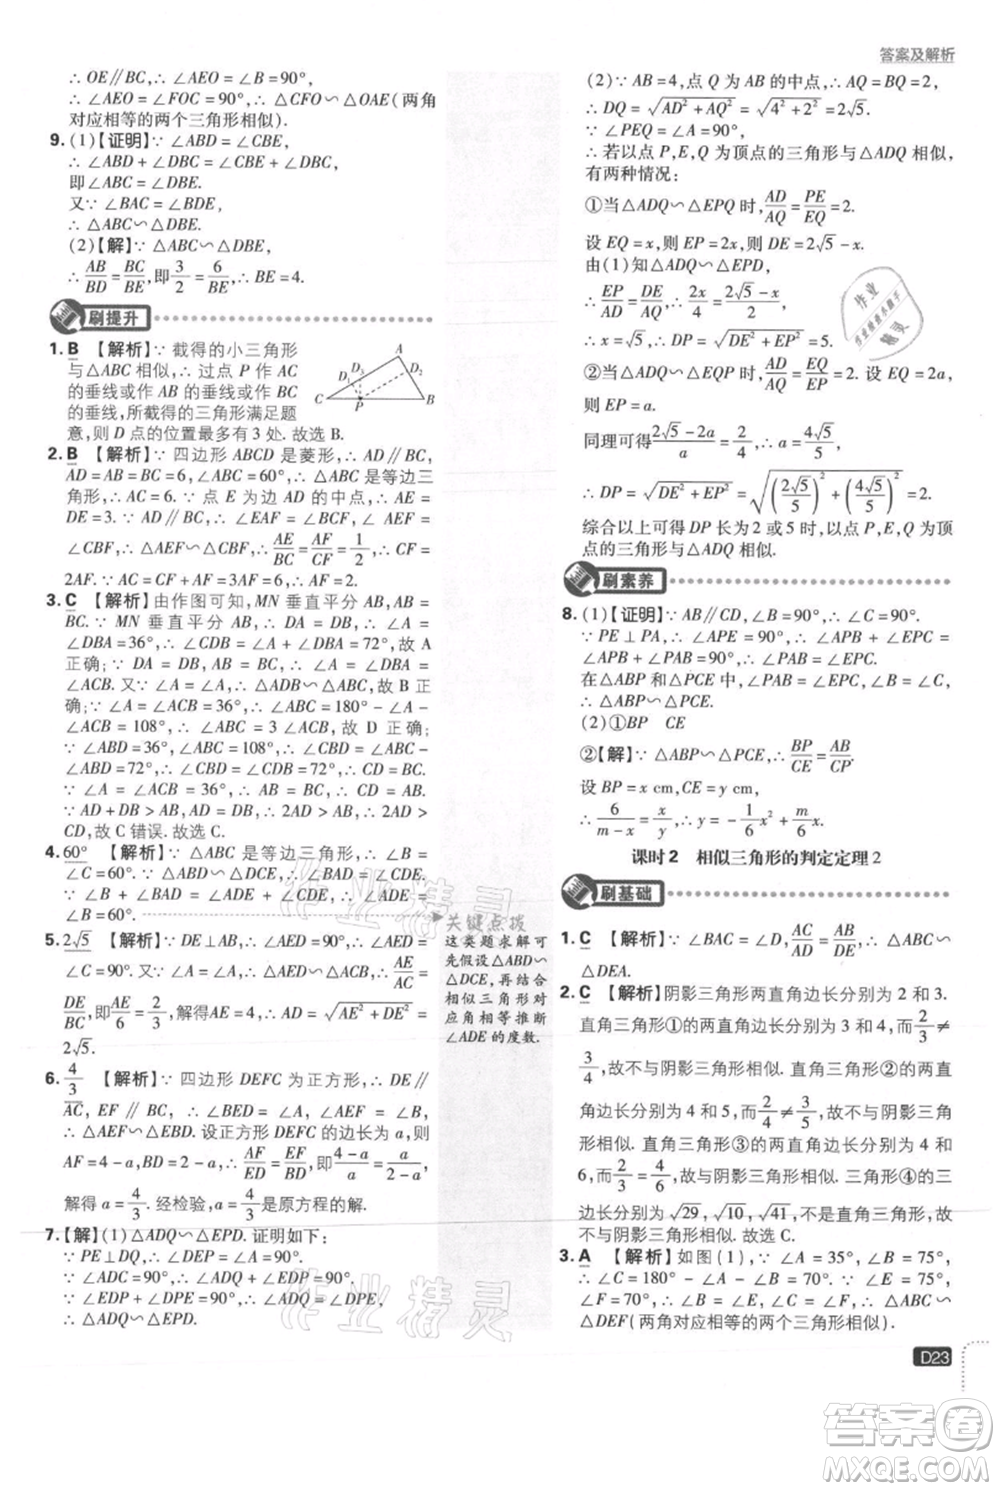 答案及解析
∴ OE∥BC,∴ ∠AEO=∠B=90°,
∴ ∠AEO=∠FOC=90°,∴ △COF∽△OAE(两角
对应相等的两个三角形相似).
9. (1)【证明】∵ ∠ABD=∠CBE,
∴ ∠ABD+∠DBC=∠CBE+∠DBC,
即∠ABC=∠DBE.
又∵ ∠BAC=∠BDE,
∴ △ABC∽△DBE.
(2)【解】∵ △ABC∽△DBE,
∴ AB/BD=BC/BE,即3/2=6/BE,∴ BE=4.
刷提升
1. B 【解析】∵ 截得的小三角形
与△ABC 相似,∴ 过点 P 作 AC
的垂线或作 AB 的垂线或作 BC
的垂线,所截得的三角形满足题
意,则 D 点的位置最多有 3 处. 故选 B.
A
D₃
D₁
D₂
C
P
B
2. B 【解析】∵ 四边形 ABCD 是菱形,∴ AB=BC=
AD=AB=AC=6,∠ABC=60°,∴ △ABC 是等边三
角形,∴ AC=6. ∵ 点 E 为边 AD 的中点,∴ AE=
DE=3. ∵ AD∥BC,∴ ∠EAF=∠BCF,∠AEF=
∠CBF,∴ △AEF∽△CBF,∴ AE/CB=AF/CF=1/2,∴ CF=
2AF. ∵ AF+CF=AC=6,∴ 3AF=6,∴ AF=2. 故选 B.
3. C 【解析】由作图可知,MN 垂直平分 AB,AB=
BC. ∵ MN 垂直平分 AB,∴ DA=DB,∴ ∠A=
∠DBA=36°,∴ ∠BDC=∠A+∠DBA=72°,故 A
正确;∵ DA=DB,AB=BC,∴ ∠A=∠DBA=
∠ACB. ∵ ∠A=∠A,∴ △ADB∽△ABC,故 B 正
确;∵ ∠A=∠ACB=36°,∴ ∠ABC=180°-∠A-
∠ACB=108°,∴ ∠ABC=3∠ACB,故 D 正确;
∵ ∠ABD=36°,∠ABC=108°,∴ ∠CBD=∠ABC-
∠ABD=72°,∴ ∠CBD=∠BDC,∴ CD=BC=AB.
∵ ∠A=∠ACB=36°,∠ADB=∠ABC=108°,
∵ AD+DB>AB,AD=DB,∴ 2AD>AB,∴ 2AD>
CD,故 C 错误. 故选 C.
4. 60° 【解析】∵ △ABC 是等边三角形,∴ ∠C=
∠B=60°. ∵ △ABD∽△DCE,∴ ∠BAD=∠CDE,
∵ ∠ADE+∠CDE=∠BAD+∠B,∴ ∠ADE=
∠B=60°.
关键点拨
这类题求解可
先假设△ABD∽
△DCE,再结合
相似三角形对
应角相等推断
∠ADE 的度数.
5. 2√5 【解析】∵ DE⊥AB,∴ ∠AED=90°,∴ ∠AED=
∠C=90°. ∵ ∠A=∠A,∴ △AED∽△ACB,∴ AE/AC=
DE/BC,即AE/6=2/3,∴ AE=4,∴ AD=√(AE²+DE²)=
2√5.
6. 4/3 【解析】∵ 四边形 DEFC 为正方形,∴ DE∥
AC,EF∥BC,∴ ∠BED=∠A,∠AEF=∠B,
∴ △AEF∽△EBD. 设正方形 DEFC 的边长为 a,则
AF=4-a,BD=2-a,∴ AF/ED=EF/BD,即(4-a)/a=a/(2-a),
解得 a=4/3. 经检验,a=4/3是原方程的解.
7. 【解】(1)△ADQ∽△EPD. 证明如下:
∵ PE⊥DQ,∴ ∠DEP=∠A=90°.
∵ ∠ADC=90°,∴ ∠ADQ+∠EDP=90°,
∵ ∠EDP+∠DPE=90°,∴ ∠ADQ=∠DPE,
∴ △ADQ∽△EPD.
(2)∵ AB=4,点 Q 为 AB 的中点,∴ AQ=BQ=2,
∴ DQ=√(AD²+AQ²)=√(4²+2²)=2√5.
∵ ∠PEQ=∠A=90°,
∴ 若以点 P,E,Q 为顶点的三角形与△ADQ 相似,
有两种情况:
①当△ADQ∽△EPQ 时,AD/AQ=PE/EQ=2.
设 EQ=x,则 EP=2x,则 DE=2√5-x.
由(1)知△ADQ∽△EPD,
∴ EP/AD=DE/AQ,∴ 2x/4=(2√5-x)/2,
∴ x=√5,∴ DP=√(DE²+EP²)=5.
②当△ADQ∽△EQP 时,AD/AQ=EQ/EP=2. 设 EQ=2a,
则 EP=a.
同理可得(2√5-2a)/a=2/4,∴ a=4√5/5,
∴ DP=√(DE²+EP²)=√((2√5/5)²+(4√5/5)²)=2.
综合以上可得 DP 长为 2 或 5 时,以点 P,E,Q 为顶
点的三角形与△ADQ 相似.
刷素养
8. (1)【证明】∵ AB∥CD,∠B=90°,∴ ∠C=90°.
∵ PE⊥PA,∴ ∠APE=90°,∴ ∠APB+∠CPE=
90°. ∵ ∠PAB+∠APB=90°,∴ ∠PAB=∠CPE.
在△ABP 和△PCE 中,∵ ∠PAB=∠CPE,∠B=∠C,
∴ △ABP∽△PCE.
(2)①BP CE
②【解】∵ △ABP∽△PCE,∴ BP/CE=AB/PC.
设 BP=x cm,CE=y cm,
∴ 6/(m-x)=x/y,∴ y=-1/6x²+m/6x.
课时2 相似三角形的判定定理2
刷基础
1. C 【解析】∵ ∠BAC=∠D,AC/AD=AB/DE,∴ △ABC∽
△DEA.
2. C 【解析】阴影三角形两直角边长分别为 2 和 3.
直角三角形①的两直角边长分别为 3 和 4,而2/3≠
3/4,故不与阴影三角形相似. 直角三角形②的两直
角边长分别为 2 和 5,而2/3≠2/5,故不与阴影三角形
相似. 直角三角形③的两直角边长分别为 4 和 6,
2/3=4/6,故与阴影三角形相似. 三角形④的三边
边长分别为√29,√10,√41,不是直角三角形,故
不与阴影三角形相似. 故选 C.
3. A 【解析】如图(1),∵ ∠A=35°,∠B=75°,
∴ ∠C=180°-∠A-∠B=70°. ∵ ∠E=75°,
∠F=70°,∴ ∠B=∠E,∠C=∠F,∴ △ABC∽
△DEF(两角对应相等的两个三角形相似).
D23
作业精灵
作业精灵
答案卷
MXQE.COM